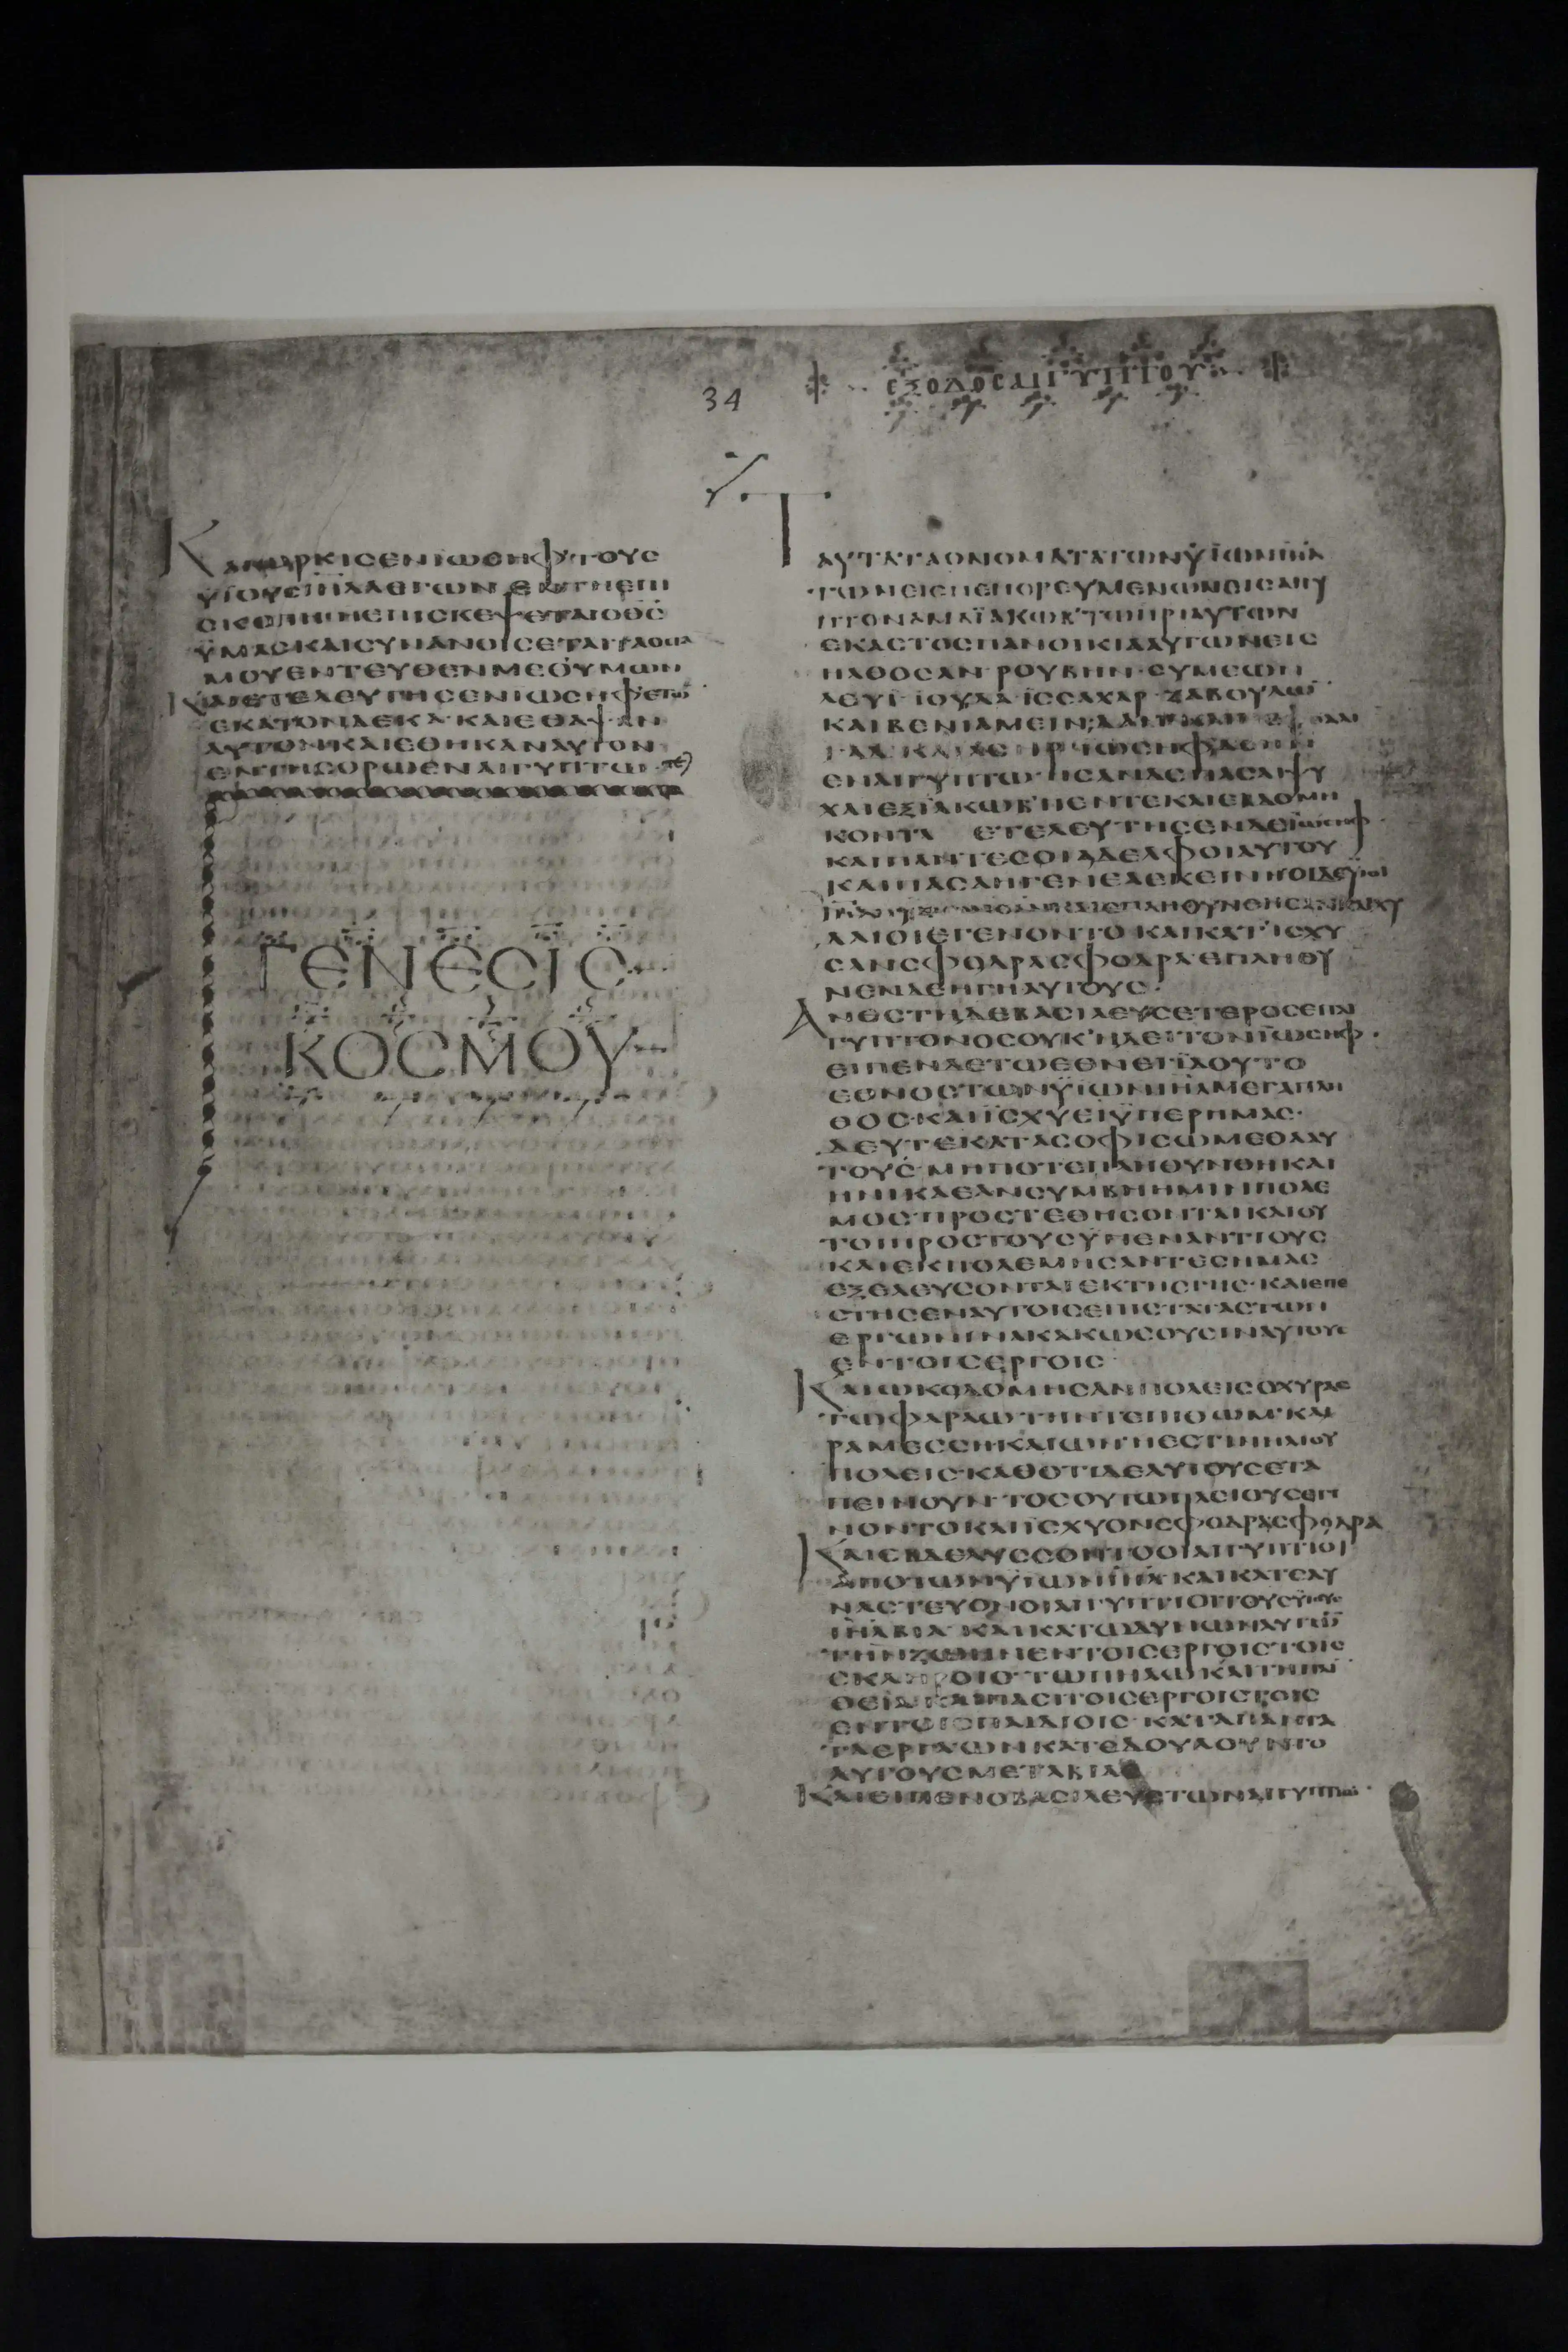 34
ΕΞΟΔΟΣ ΑΙΓΥΠΤΟΥ
ΚΑΙ ΩΡΚΙCΕΝ ΙΩCΗΦ ΤΟΥC
ΥΙΟΥC ΙΗΛ ΛΕΓΩΝ ΕΝ ΤΗ ΕΠΙ
CΚΟΠΗ ΗC ΕΠΙCΚΕΨΕΤΑΙ Ο ΘC
ΫΜΑC ΚΑΙ CΥΝΑΝΟΙCΕΤΑΙ ΤΑ ΟCΤΑ
ΜΟΥ ΕΝΤΕΥΘΕΝ ΜΕΘ ΥΜΩΝ
ΚΑΙ ΕΤΕΛΕΥΤΗCΕΝ ΙΩCΗΦ ΕΤΩ
ΕΚΑΤΟΝ ΔΕΚΑ· ΚΑΙ ΕΘΑΨΑΝ
ΑΥΤΟΝ· ΚΑΙ ΕΘΗΚΑΝ ΑΥΤΟΝ
ΕΝ ΤΗ CΟΡΩ ΕΝ ΑΙΓΥΠΤΩ
ΓΕΝΕCΙC
ΚΟCΜΟΥ
ΤΑΥΤΑ ΤΑ ΟΝΟΜΑΤΑ ΤΩΝ ΫΪΩΝ ΙΗΛ
ΤΩΝ ΕΙCΠΕΠΟΡΕΥΜΕΝΩΝ ΕΙC ΑΙΓΥ
ΠΤΟΝ ΑΜΑ ΪΑΚΩΒ ΤΩ ΠΡΙ ΑΥΤΩΝ
ΕΚΑCΤΟC ΠΑΝΟΙΚΙΑ ΑΥΤΩΝ ΕΙC
ΗΛΘΟCΑΝ· ΡΟΥΒΗΝ· CΥΜΕΩΝ
ΛΕΥΙ· ΙΟΥΔΑ· ΙCCΑΧΑΡ· ΖΑΒΟΥΛΩ
ΚΑΙ ΒΕΝΙΑΜΕΙΝ
ΕΝ ΑΙΓΥΠΤΩ· ΗCΑΝ ΔΕ ΠΑCΑΙ ΨΥ
ΧΑΙ ΕΞ ΪΑΚΩΒ ΠΕΝΤΕ ΚΑΙ ΕΒΔΟΜΗ
ΚΟΝΤΑ ΕΤΕΛΕΥΤΗCΕΝ ΔΕ ΙΩCΗΦ
ΚΑΙ ΠΑΝΤΕC ΟΙ ΑΔΕΛΦΟΙ ΑΥΤΟΥ
ΚΑΙ ΠΑCΑ Η ΓΕΝΕΑ ΕΚΕΙΝΗ· ΟΙ ΔΕ ΥΙΟΙ
ΔΑΙΟΙ ΕΓΕΝΟΝΤΟ· ΚΑΙ ΚΑΤΙCΧΥ
CΑΝ CΦΟΔΡΑ CΦΟΔΡΑ· ΕΠΛΗΘΥ
ΝΕΝ ΔΕ Η ΓΗ ΑΥΤΟΥC·
ΑΝΕCΤΗ ΔΕ ΒΑCΙΛΕΥC ΕΤΕΡΟC ΕΠ ΑΙ
ΓΥΠΤΟΝ ΟC ΟΥΚ ΗΔΕΙ ΤΟΝ ΙΩCΗΦ·
ΕΙΠΕΝ ΔΕ ΤΩ ΕΘΝΕΙ ΪΔΟΥ ΤΟ
ΕΘΝΟC ΤΩΝ ΫΪΩΝ ΙΗΛ ΜΕΓΑ ΠΛΗ
ΘΟC· ΚΑΙ ΪCΧΥΕΙ ΫΠΕΡ ΗΜΑC·
ΔΕΥΤΕ ΚΑΤΑCΟΦΙCΩΜΕΘΑ ΑΥ
ΤΟΥC· ΜΗΠΟΤΕ ΠΛΗΘΥΝΘΗ ΚΑΙ
ΗΝΙΚΑ ΕΑΝ CΥΜΒΗ ΗΜΙΝ ΠΟΛΕ
ΜΟC· ΠΡΟCΤΕΘΗCΟΝΤΑΙ ΚΑΙ ΟΥ
ΤΟΙ ΠΡΟC ΤΟΥC ΫΠΕΝΑΝΤΙΟΥC
ΚΑΙ ΕΚΠΟΛΕΜΗCΑΝΤΕC ΗΜΑC
ΕΞΕΛΕΥCΟΝΤΑΙ ΕΚ ΤΗC ΓΗC· ΚΑΙ ΕΠΕ
CΤΗCΕΝ ΑΥΤΟΙC ΕΠΙCΤΑΤΑC ΤΩΝ
ΕΡΓΩΝ ΙΝΑ ΚΑΚΩCΟΥCΙΝ ΑΥΤΟΥC
ΕΝ ΤΟΙC ΕΡΓΟΙC
ΚΑΙ ΩΚΟΔΟΜΗCΑΝ ΠΟΛΕΙC ΟΧΥΡΑC
ΤΩ ΦΑΡΑΩ ΤΗΝ ΤΕ ΠΙΘΩΜ· ΚΑΙ
ΡΑΜΕCCΗ ΚΑΙ ΩΝ Η ΕCΤΙΝ ΗΛΙΟΥ
ΠΟΛΕΙC· ΚΑΘΟΤΙ ΔΕ ΑΥΤΟΥC ΕΤΑ
ΠΕΙΝΟΥΝ· ΤΟCΟΥΤΩ ΠΛΕΙΟΥC ΕΓΙ
ΝΟΝΤΟ ΚΑΙ ΙCΧΥΟΝ CΦΟΔΡΑ CΦΟΔΡΑ
ΚΑΙ ΕΒΔΕΛΥCCΟΝΤΟ ΟΙ ΑΙΓΥΠΤΙΟΙ
ΑΠΟ ΤΩΝ ΫΪΩΝ ΙΗΛ ΚΑΙ ΚΑΤΕΔΥ
ΝΑCΤΕΥΟΝ ΟΙ ΑΙΓΥΠΤΙΟΙ ΤΟΥC ΥΙΟΥC
ΙΗΛ ΒΙΑ· ΚΑΙ ΚΑΤΩΔΥΝΩΝ ΑΥΤΩ
ΤΗΝ ΖΩΗΝ ΕΝ ΤΟΙC ΕΡΓΟΙC ΤΟΙC
CΚΛΗΡΟΙC· ΤΩ ΠΗΛΩ ΚΑΙ ΤΗ ΠΛΙΝ
ΘΕΙΑ ΚΑΙ ΠΑCΙ ΤΟΙC ΕΡΓΟΙC ΤΟΙC
ΕΝ ΤΟΙC ΠΑΙΔΙΟΙC· ΚΑΤΑ ΠΑΝΤΑ
ΤΑ ΕΡΓΑ ΩΝ ΚΑΤΕΔΟΥΛΟΥΝΤΟ
ΑΥΤΟΥC ΜΕΤΑ ΒΙΑC
ΚΑΙ ΕΙΠΕΝ Ο ΒΑCΙΛΕΥC ΤΩΝ ΑΙΓΥΠΤΙΩΝ·